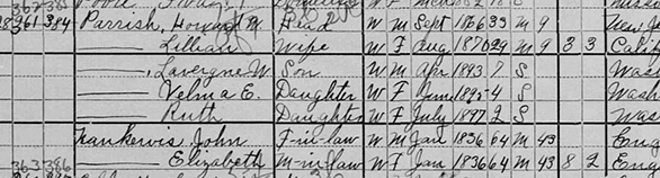 361 384 Parrish, Howard M. Head W M Sept 1866 33 M 9 New J
Lillian Wife W F Aug 1870 29 M 9 3 3 Calif
Lavergne W. Son W M Apr 1893 7 S Was
Velma E. Daughter W F June 1895 4 S Was
Ruth Daughter W F July 1897 2 S Was
John F-in-law W M Jan 1836 64 M 43 Eng
363 386 Elizabeth M-in-law W F Jan 1836 64 M 43 8 2 Eng